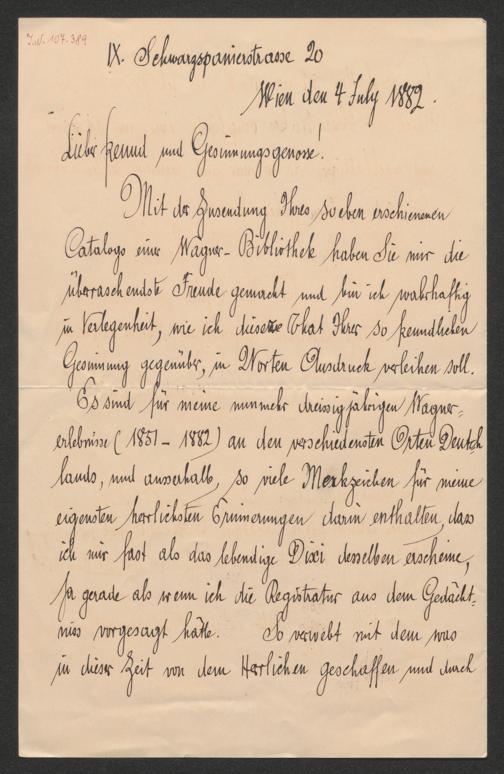 I.N. 107.389
IX. Schwarzspanierstrasse 20
Wien den 4 July 1882.
Lieber Freund und Gesinnungsgenosse!
Mit der Zusendung Ihres soeben erschienenen
Catalogs einer Wagner-Bibliothek haben Sie mir die
überraschendste Freude gemacht und bin ich wahrhaftig
in Verlegenheit, wie ich dieser That Ihrer so freundlichen
Gesinnung gegenüber, in Worten Ausdruck verleihen soll.
Es sind für meine nunmehr dreissigjährigen Wagner-
erlebnisse (1851 - 1882) an den verschiedensten Orten Deutsch
lands, und ausserhalb, so viele Merkzeichen für meine
eigensten herrlichsten Erinnerungen darin enthalten, dass
ich mir fast als das lebendige Dixi desselben erscheine,
ja gerade als wenn ich die Registratur aus dem Gedächt-
niss vorgesagt hätte. So verwebt mit dem was
in dieser Zeit von dem Herrlichen geschaffen und durch